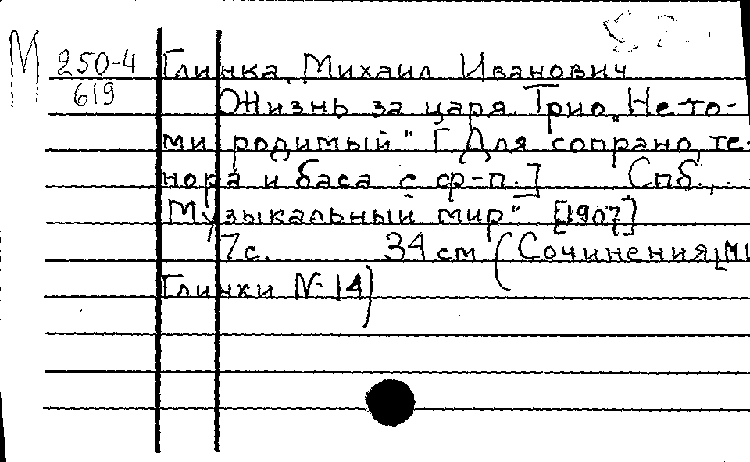 М 250-4
619
Глинка, Михаил Иванович
Жизнь за царя. Трио „Не то-
ми родимый" [Для сопрано, те-
нора и баса с ф-п.] Спб.,
„Музыкальный мир" [1907]
7 с. 34 см (Сочинения М
Глинки № 14)